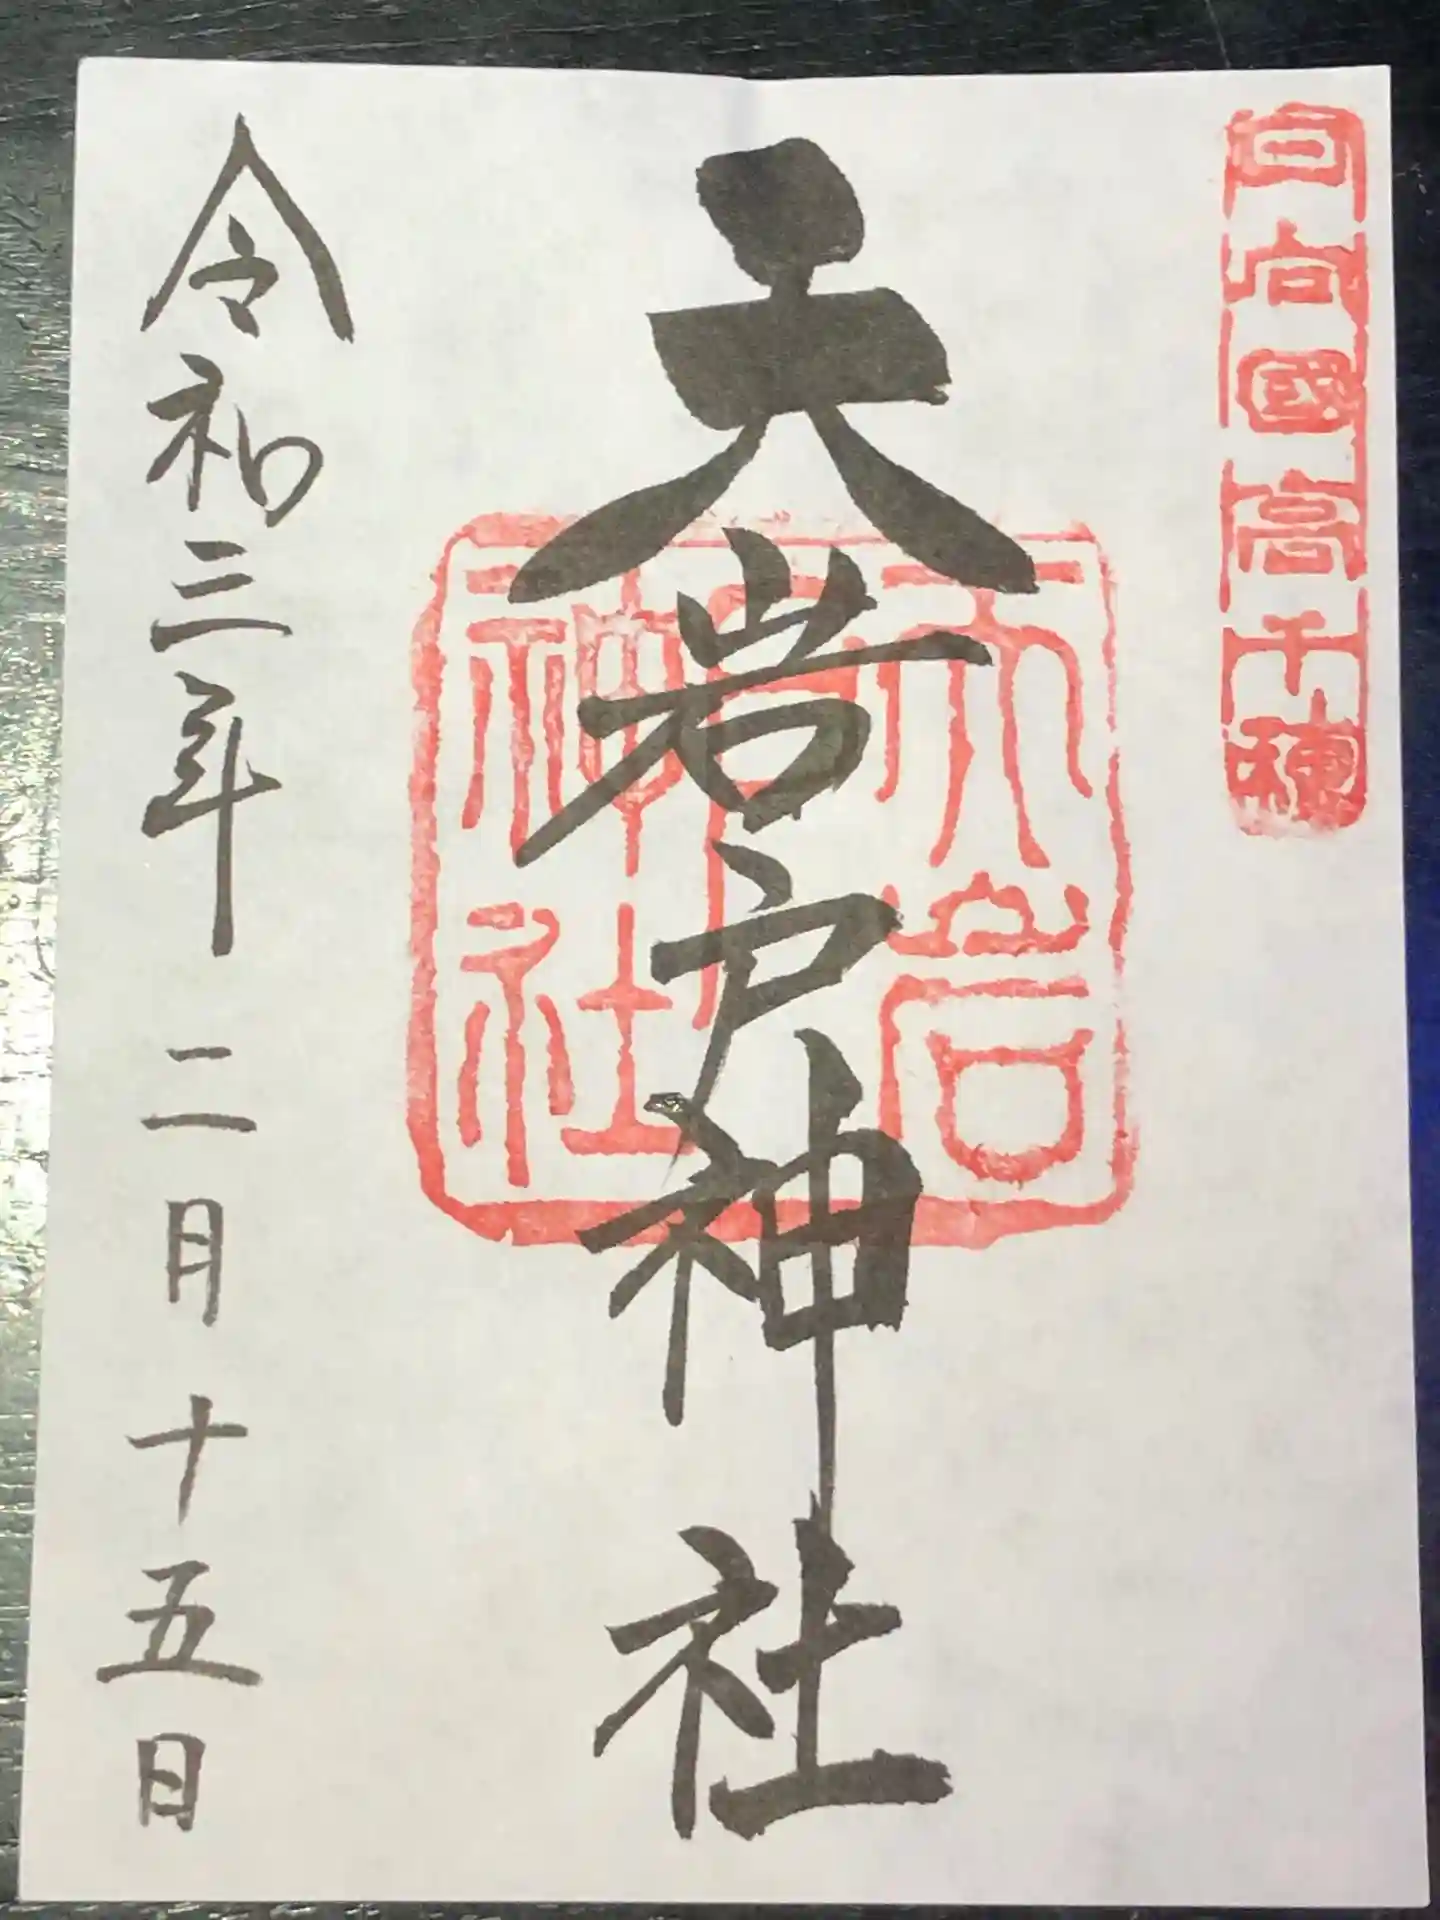 日向國高千穂
天岩戸神社
天岩戸神社
令和三年二月十五日